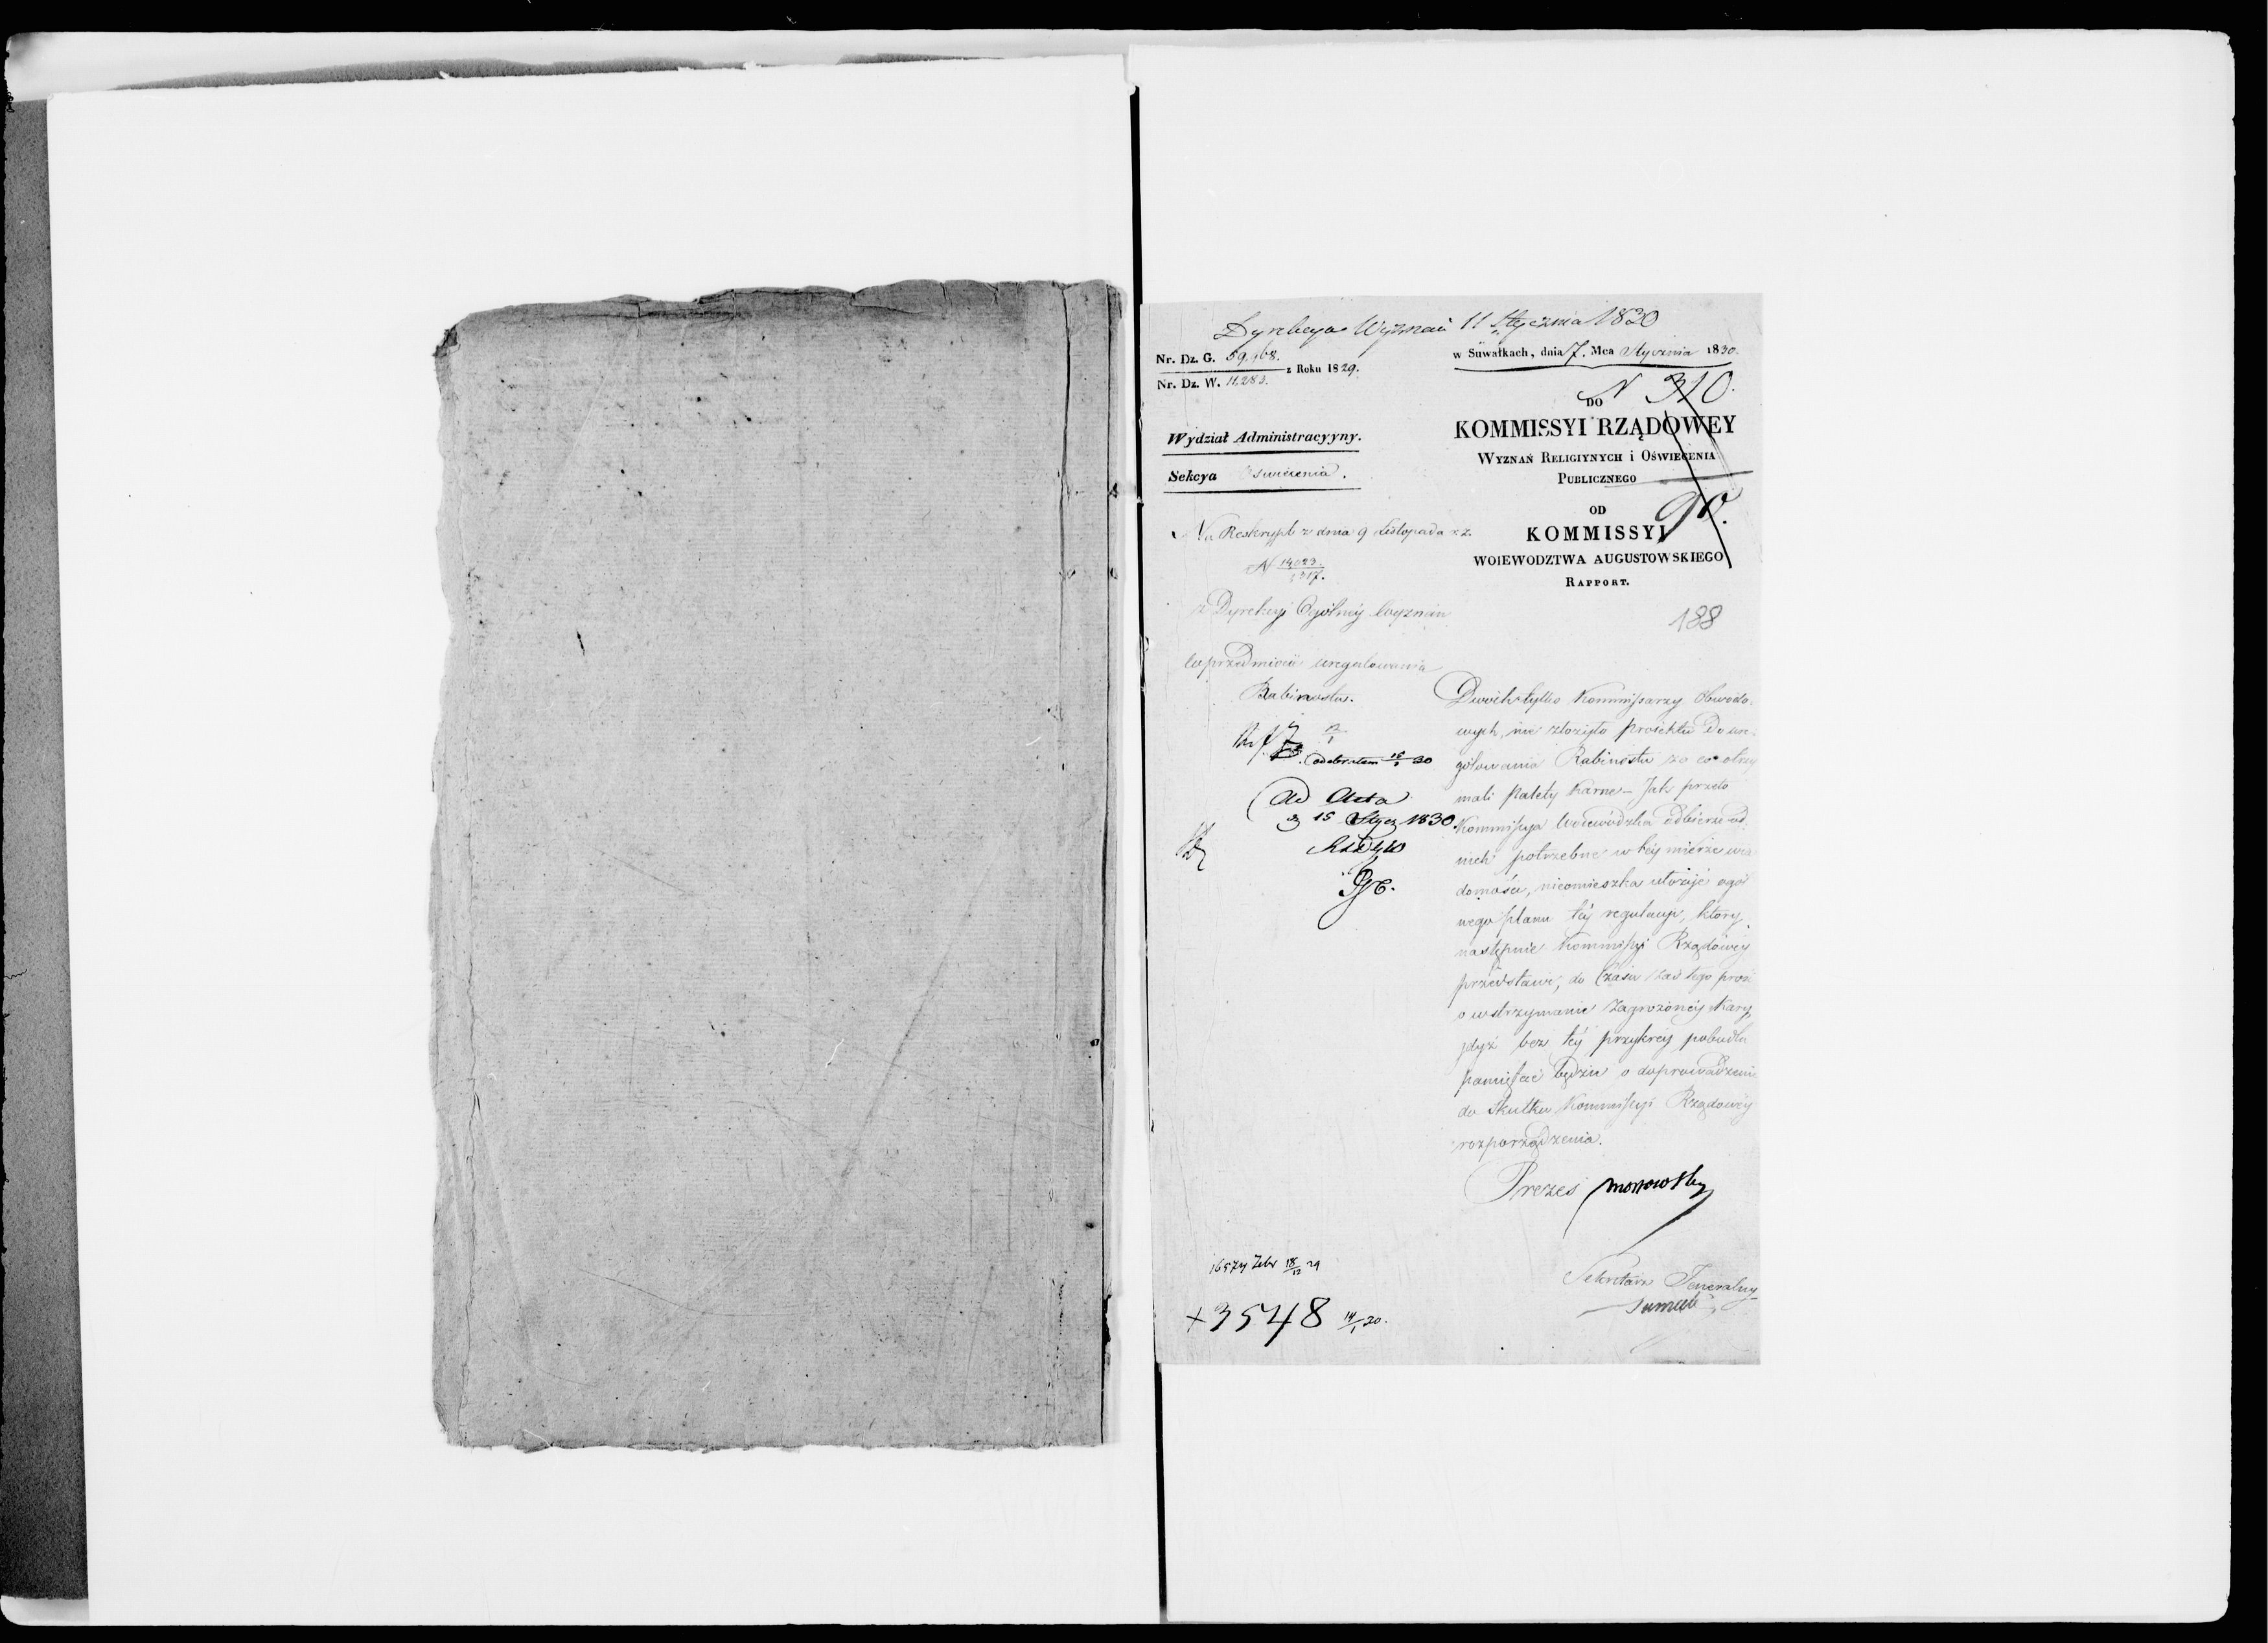 Dyrekcya Wyznań 11 Stycznia 1830
Nr. Dz. G. 59,468.
z Roku 1829.
Nr. Dz. W. 11,283.
w Suwałkach, dnia 7. Mca Stycznia 1830.
N 310.
90.
Wydział Administracyyny.
Sekcya Oswiecenia.
DO
KOMMISSYI RZĄDOWEY
WYZNAŃ RELIGIYNYCH i OŚWIECENIA
PUBLICZNEGO
OD
KOMMISSYI
WOIEWODZTWA AUGUSTOWSKIEGO
RAPPORT.
188
Na Reskrypt z dnia 9 Listopada r. z.
N
z Dyrekcyi Ogólney Wyznań
w przedmiocie uregulowania
Rabinostw.
odebrałem 15/1 30
Ad Acta
15 Stycz 1830.
Dwóch tylko Kommissarzy Obwodo-
wych, nie złożyło proiektu do ure-
gulowania Rabinostw za co otrzy
mali Palety karne – Jak przeto
Kommissya Woiewódzka odbierze od
nich potrzebne w téy mierze wia
domości, nieomieszka ułożyć ogól
nego planu téy regulacyi, który
następnie Kommissyi Rządowéy
przedstawi, do czasu zas tego prosi
o wstrzymanie zagrożonéy kary,
gdyż bez téy przykréy pobudki
pamiętać będzie o doprowadzeniu
do skutku Kommissyi Rządowéy
rozporządzenia.
Prezes
Sekretarz Jeneralny
18/12 29
+3548 14/1 30.